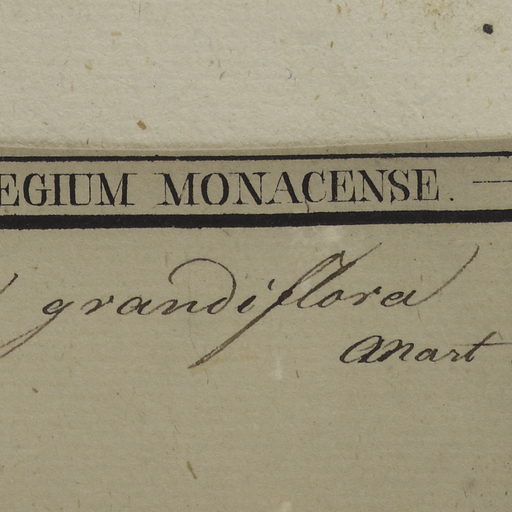 EGIUM MONACENSE. —
grandiflora
Mart